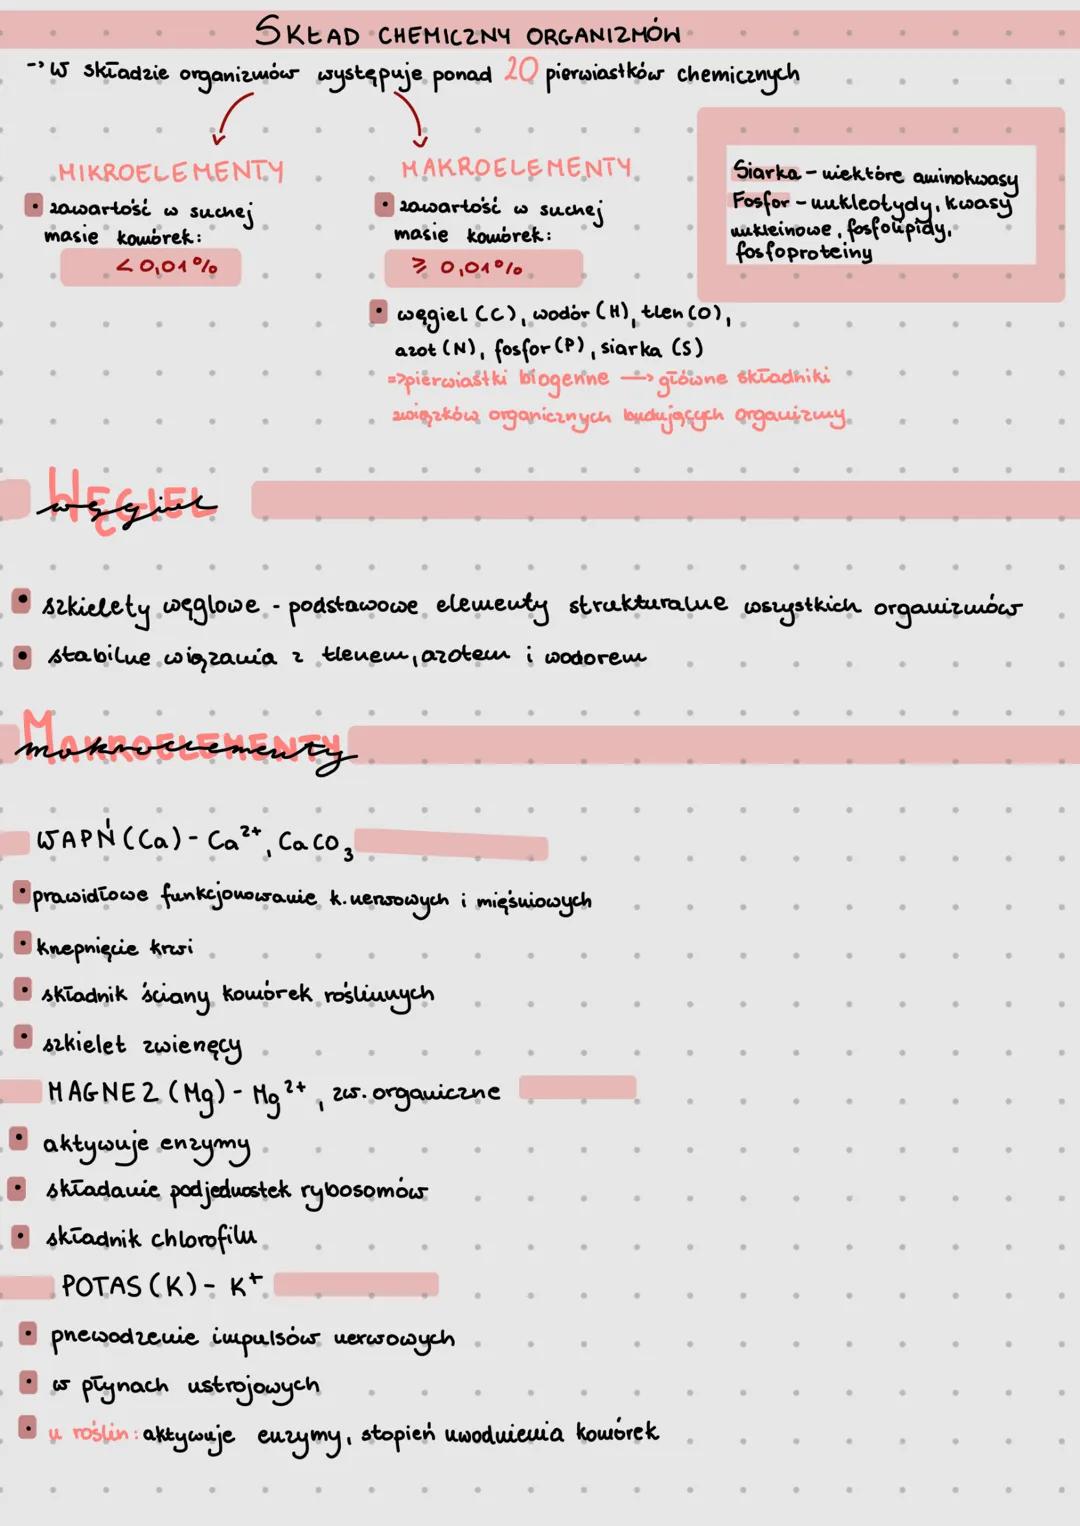 SKŁAD CHEMICZNY ORGANIZMÓW
-> W składzie organizmów występuje ponad 20 pierwiastków chemicznych
MIKROELEMENTY
• zawartość w suchej
masie komórek:
< 0,01%
MAKROELEMENTY
• zawartość w suchej
masie komórek:
⩾ 0,01%
• węgiel (C), wodór (H), tlen (O),
azot (N), fosfor (P), siarka (S)
=> pierwiastki biogenne → główne składniki
związków organicznych budujących organizmy
Siarka - niektóre aminokwasy
Fosfor - nukleotydy, kwasy
nukleinowe, fosfolipidy,
fosfoproteiny
WĘGIEL
węgiel
• szkielety węglowe - podstawowe elementy strukturalne wszystkich organizmów
• stabilne wiązania z tlenem, azotem i wodorem
MAKROELEMENTY
makroelementy
WAPŃ (Ca) - Ca²⁺, CaCO₃
• prawidłowe funkcjonowanie k. nerwowych i mięśniowych
• krzepnięcie krwi
• składnik ściany komórek roślinnych
• szkielet zwierzęcy
MAGNEZ (Mg) - Mg²⁺, zw. organiczne
• aktywuje enzymy
• składanie podjednostek rybosomów
• składnik chlorofilu
POTAS (K) - K⁺
• przewodzenie impulsów nerwowych
• w płynach ustrojowych
• u roślin: aktywuje enzymy, stopień uwodnienia komórek